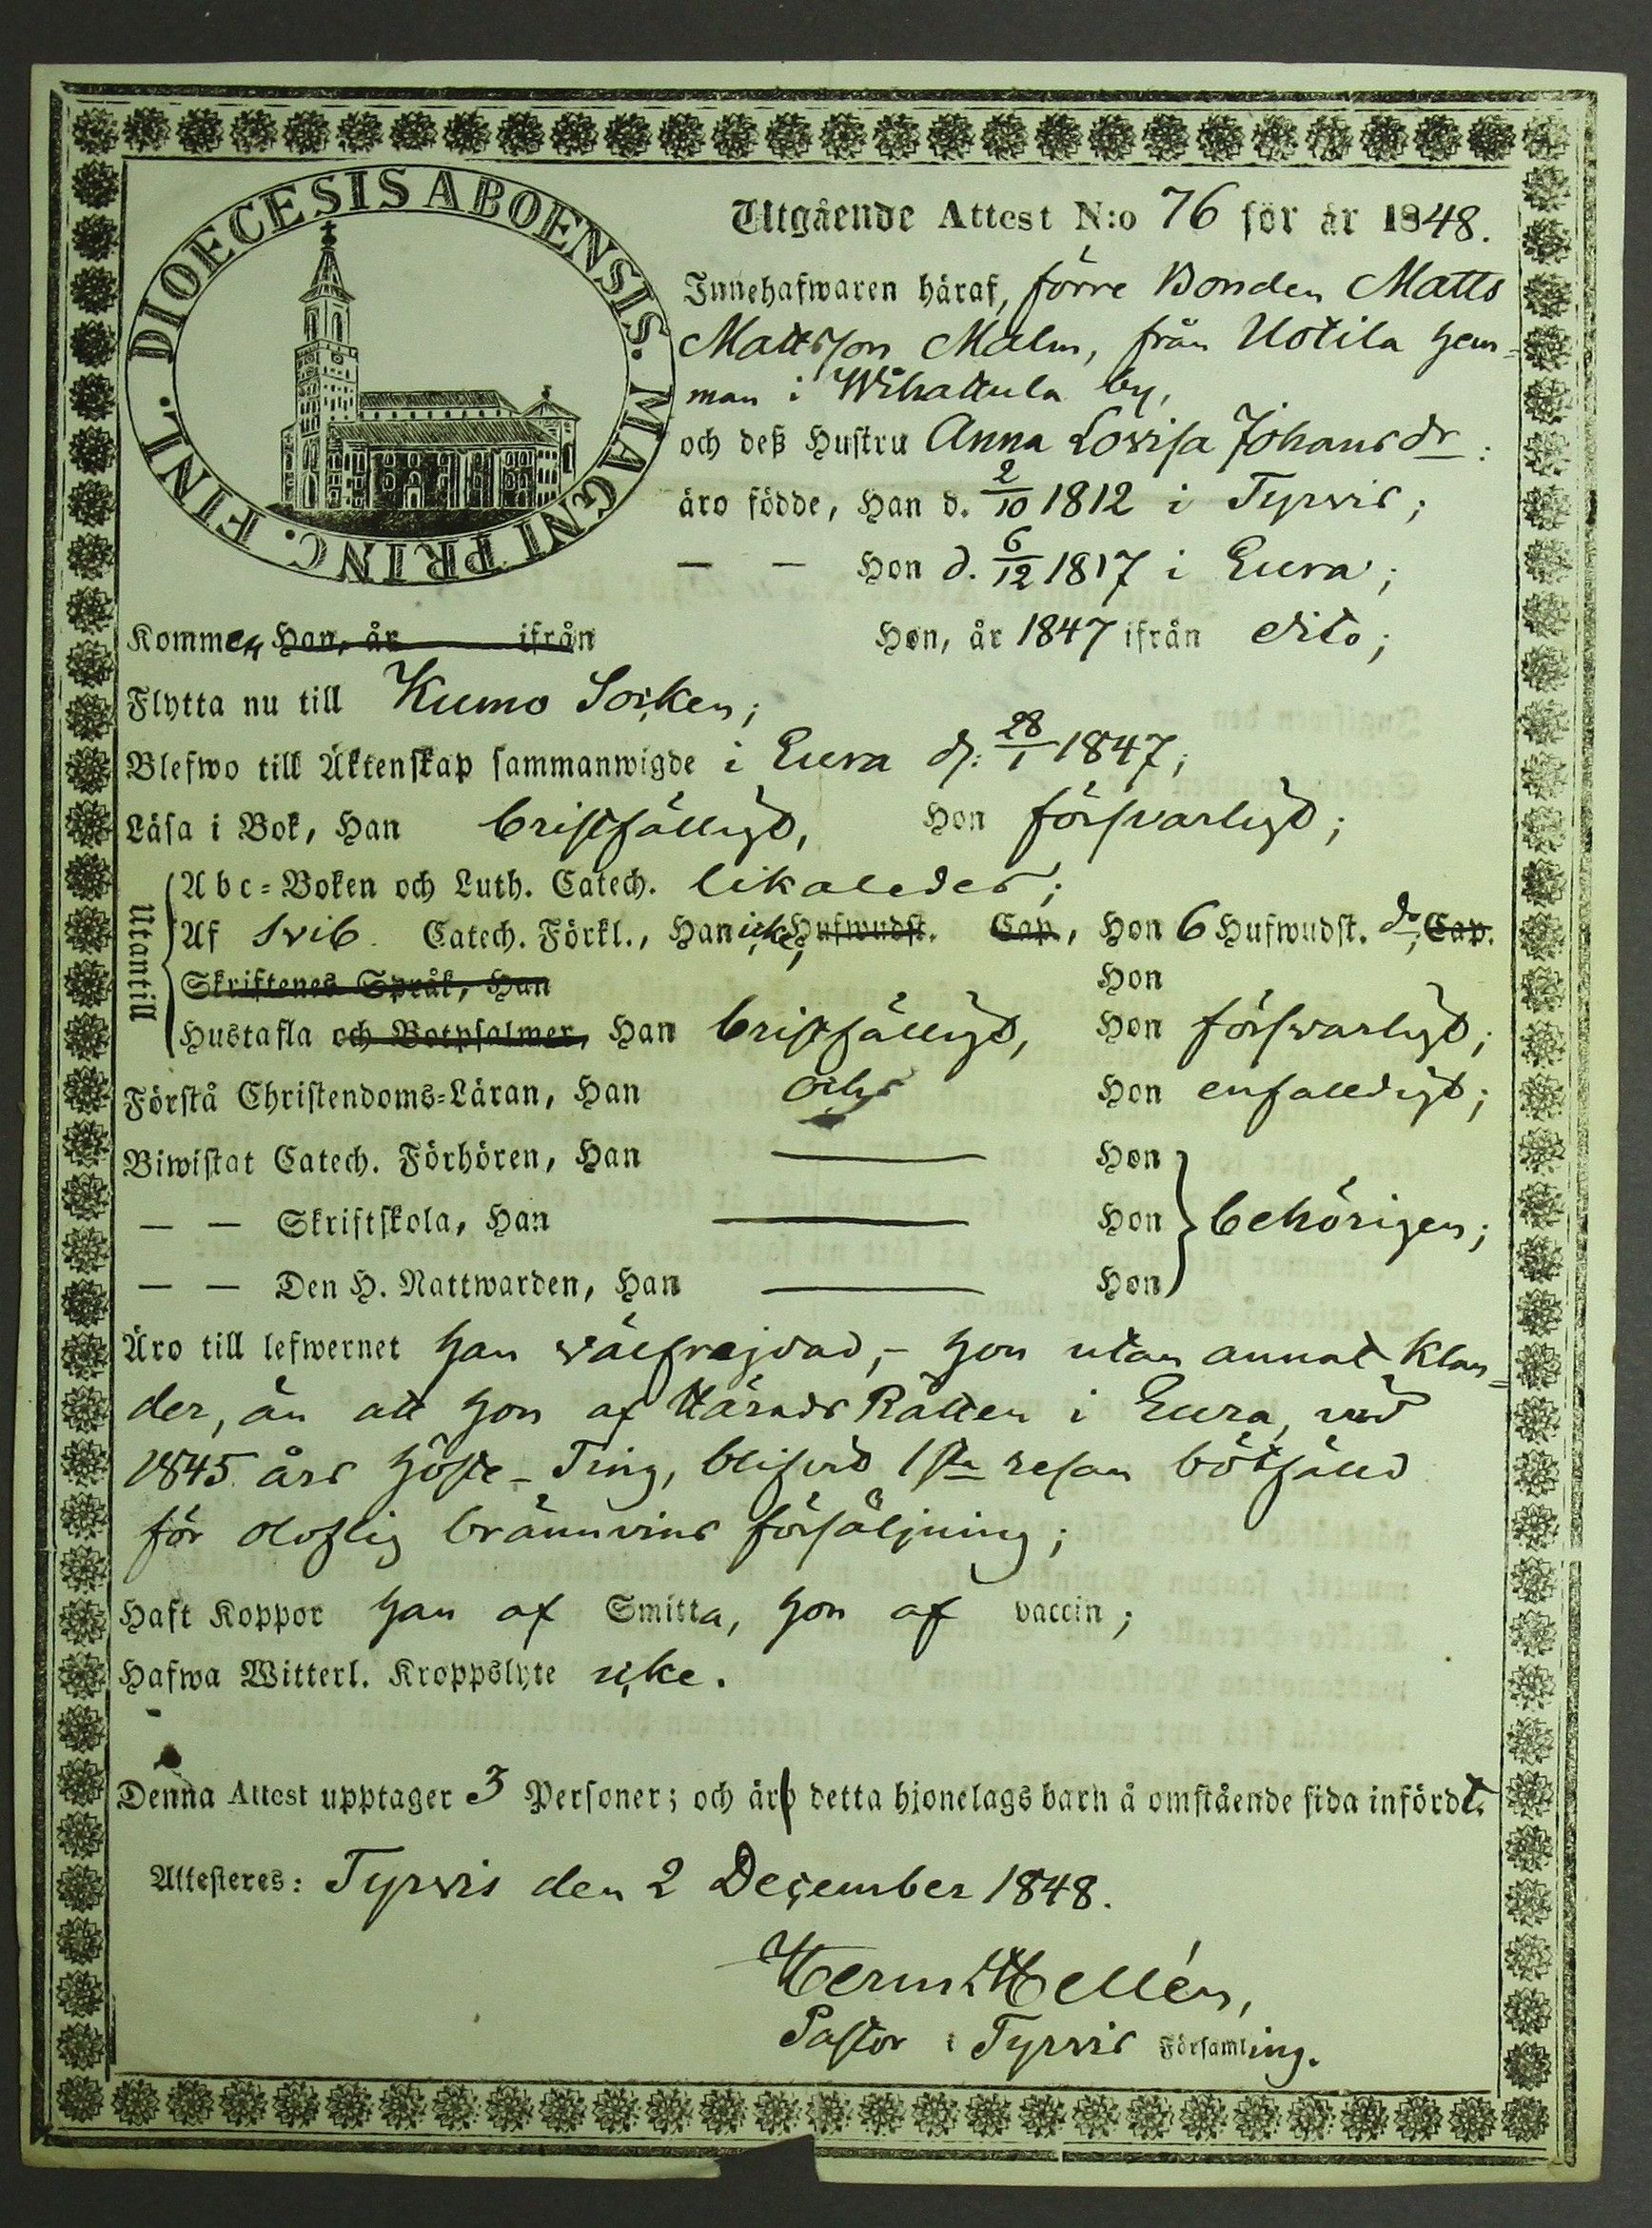 DIOECESIS ABOENSIS. MAGNI PRINC. FINL.
Utgående Attest N:o 76 för år 1848.
Innehafwaren häraf, förre Bonden Matts
Mattsson Malm, från Uotila hem=
man i Wihattula by,
och deß Hustru Anna Lovisa Johansdr:
äro födde, Han d. 2/10 1812 i Tyrvis;
— — Hon d. 6/12 1817 i Eura;
Kommen Han, år ifrån Hon, år 1847 ifrån dito;
Flytta nu till Kumo Socken;
Blefwo till Äktenskap sammanwigde i Eura d. 28/1 1847;
Läsa i Bok, Han bristfälligt, Hon försvarligt;
Utantill
Abc=Boken och Luth. Catech. likaledes;
Af Svib. Catech. Förkl., Han icke, Hufwudst. Cap., Hon 6 Hufwudst. do; Cap.
Skriftenes Språk, Han Hon
Hustafla och Botpsalmer, Han bristfälligt, Hon försvarligt;
Förstå Christendoms=Läran, Han Hon enfaldigt;
Biwistat Catech. Förhören, Han — Hon
— — Skriftskola, Han — Hon behörigen;
— — Den H. Nattwarden, Han — Hon
Äro till lefwernet han välfrejdad, – hon utan annat klan=
der, än att hon af Härads Rätten i Eura, vid
1845 års Höste-Ting, blifvit 1sta resan bötfälld
för oloflig brännvins försäljning;
Haft Koppor han af Smitta, hon af vaccin;
Hafwa Witterl. Kroppslyte icke.
Denna Attest upptager 3 Personer; och är detta hjonelags barn å omstående sida infördt.
Attesteres: Tyrvis den 2 December 1848.
Herm. Hellén,
Pastor i Tyrvis Församling.